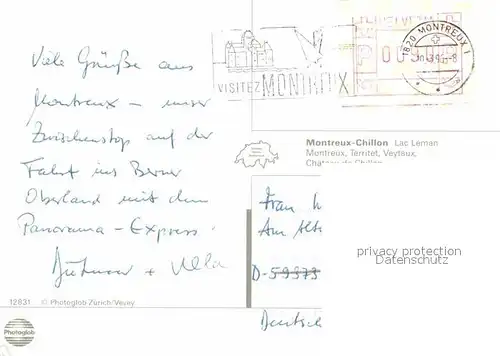 Viele Grüße aus
Montreux – unser
Zwischenstop auf der
Fahrt ins Berner
Oberland mit dem
Panorama-Express.
+ Ulla
12831 © Photoglob Zürich/Vevey
Photoglob
VISITEZ MONTREUX
1820 MONTREUX 1
Montreux-Chillon Lac Leman
Montreux, Territet, Veytaux,
Chateau de Chillon
Frau
Am
D-59373
Deutsch
privacy protection
Datenschutz